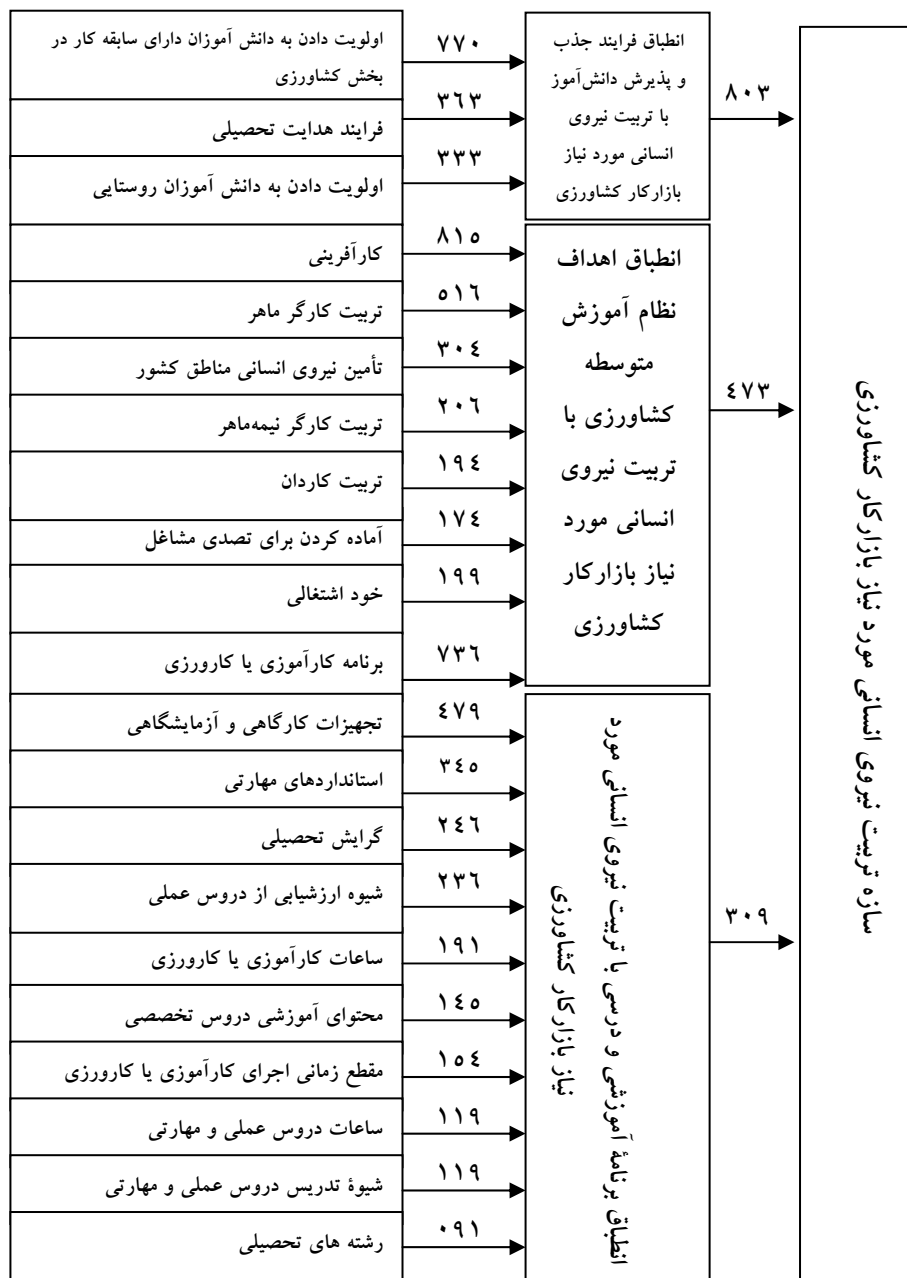 اولویت دادن به دانش آموزان دارای سابقه کار در
بخش کشاورزی
٧٧٠
فرایند هدایت تحصیلی
٣٦٣
اولویت دادن به دانش آموزان روستایی
٣٣٣
انطباق فرایند جذب
و پذیرش دانش‌آموز
با تربیت نیروی
انسانی مورد نیاز
بازارکار کشاورزی
٨٠٣
کارآفرینی
٨١٥
تربیت کارگر ماهر
٥١٦
تأمین نیروی انسانی مناطق کشور
٣٠٤
تربیت کارگر نیمه‌ماهر
٢٠٦
تربیت کاردان
١٩٤
آماده کردن برای تصدی مشاغل
١٧٤
خود اشتغالی
١٩٩
انطباق اهداف
نظام آموزش
متوسطه
کشاورزی با
تربیت نیروی
انسانی مورد
نیاز بازارکار
کشاورزی
٤٧٣
برنامه کارآموزی یا کارورزی
٧٣٦
تجهیزات کارگاهی و آزمایشگاهی
٤٧٩
استانداردهای مهارتی
٣٤٥
گرایش تحصیلی
٢٤٦
شیوه ارزشیابی از دروس عملی
٢٣٦
ساعات کارآموزی یا کارورزی
١٩١
محتوای آموزشی دروس تخصصی
١٤٥
مقطع زمانی اجرای کارآموزی یا کارورزی
١٥٤
ساعات دروس عملی و مهارتی
١١٩
شیوۀ تدریس دروس عملی و مهارتی
١١٩
رشته های تحصیلی
٠٩١
انطباق برنامۀ آموزشی و درسی با تربیت نیروی انسانی مورد
نیاز بازارکار کشاورزی
٣٠٩
سازه تربیت نیروی انسانی مورد نیاز بازارکار کشاورزی